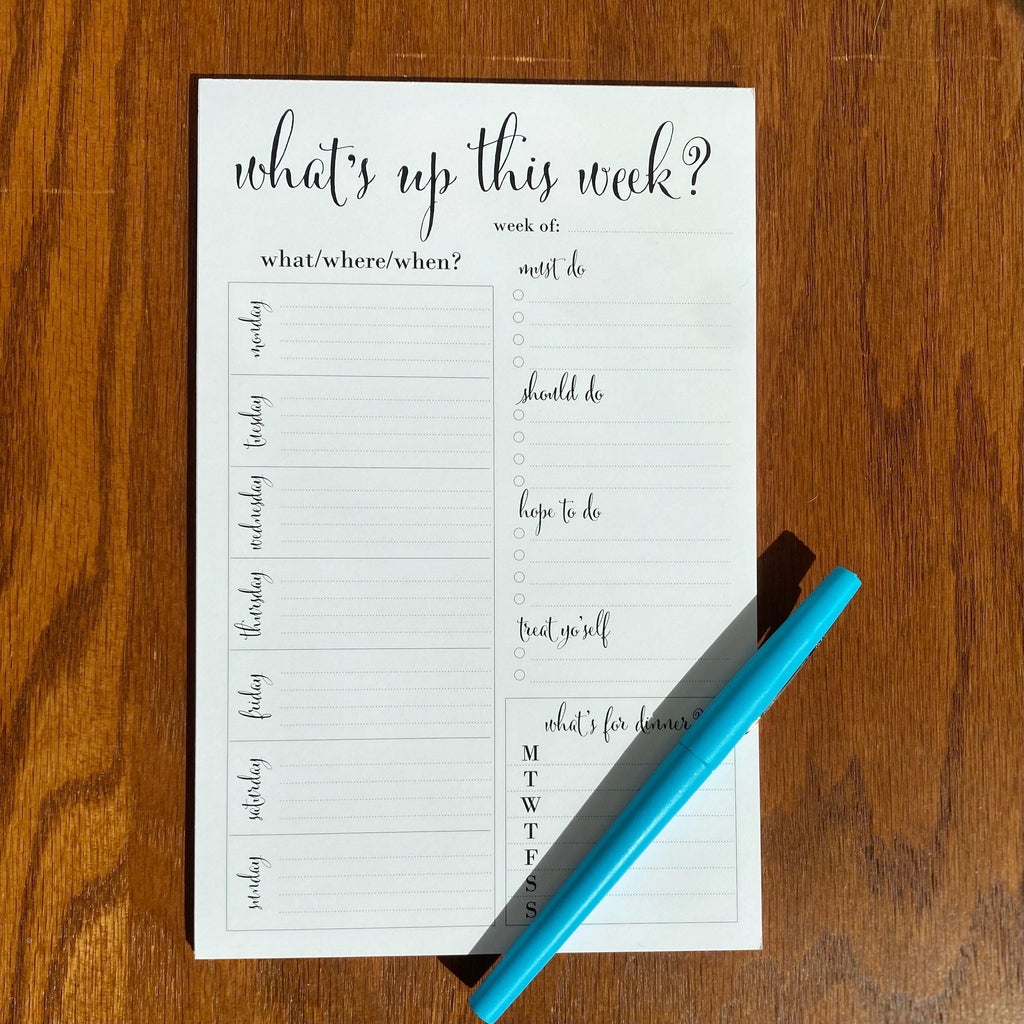 what's up this week?
week of:
what/where/when?
monday
tuesday
wednesday
thursday
friday
saturday
sunday
must do
should do
hope to do
treat yo'self
what's for dinner?
M
T
W
T
F
S
S